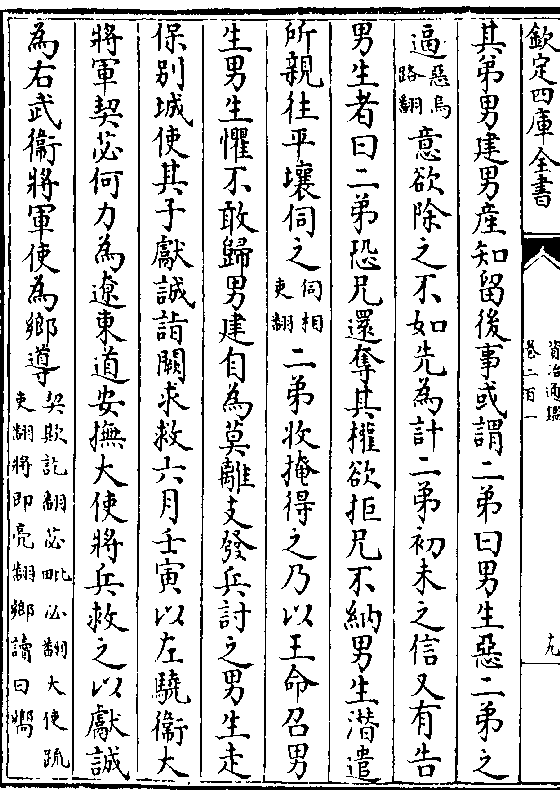 欽定四庫全書
資治通鑑
卷二百一
九
其弟男建男産知留後事或謂二弟曰男生惡二弟之
逼惡烏路翻意欲除之不如先為計二弟初未之信又有告
男生者曰二弟恐兄還奪其權欲拒兄不納男生潜遣
所親往平壤伺之伺相吏翻二弟收掩得之乃以王命召男
生男生懼不敢歸男建自為莫離支發兵討之男生走
保别城使其子獻誠詣闕求救六月壬寅以左驍衞大
將軍契苾何力為遼東道安撫大使將兵救之以獻誠
為右武衞將軍使為鄉導契欺訖翻苾毗必翻大使疏吏翻將即亮翻鄉讀曰嚮